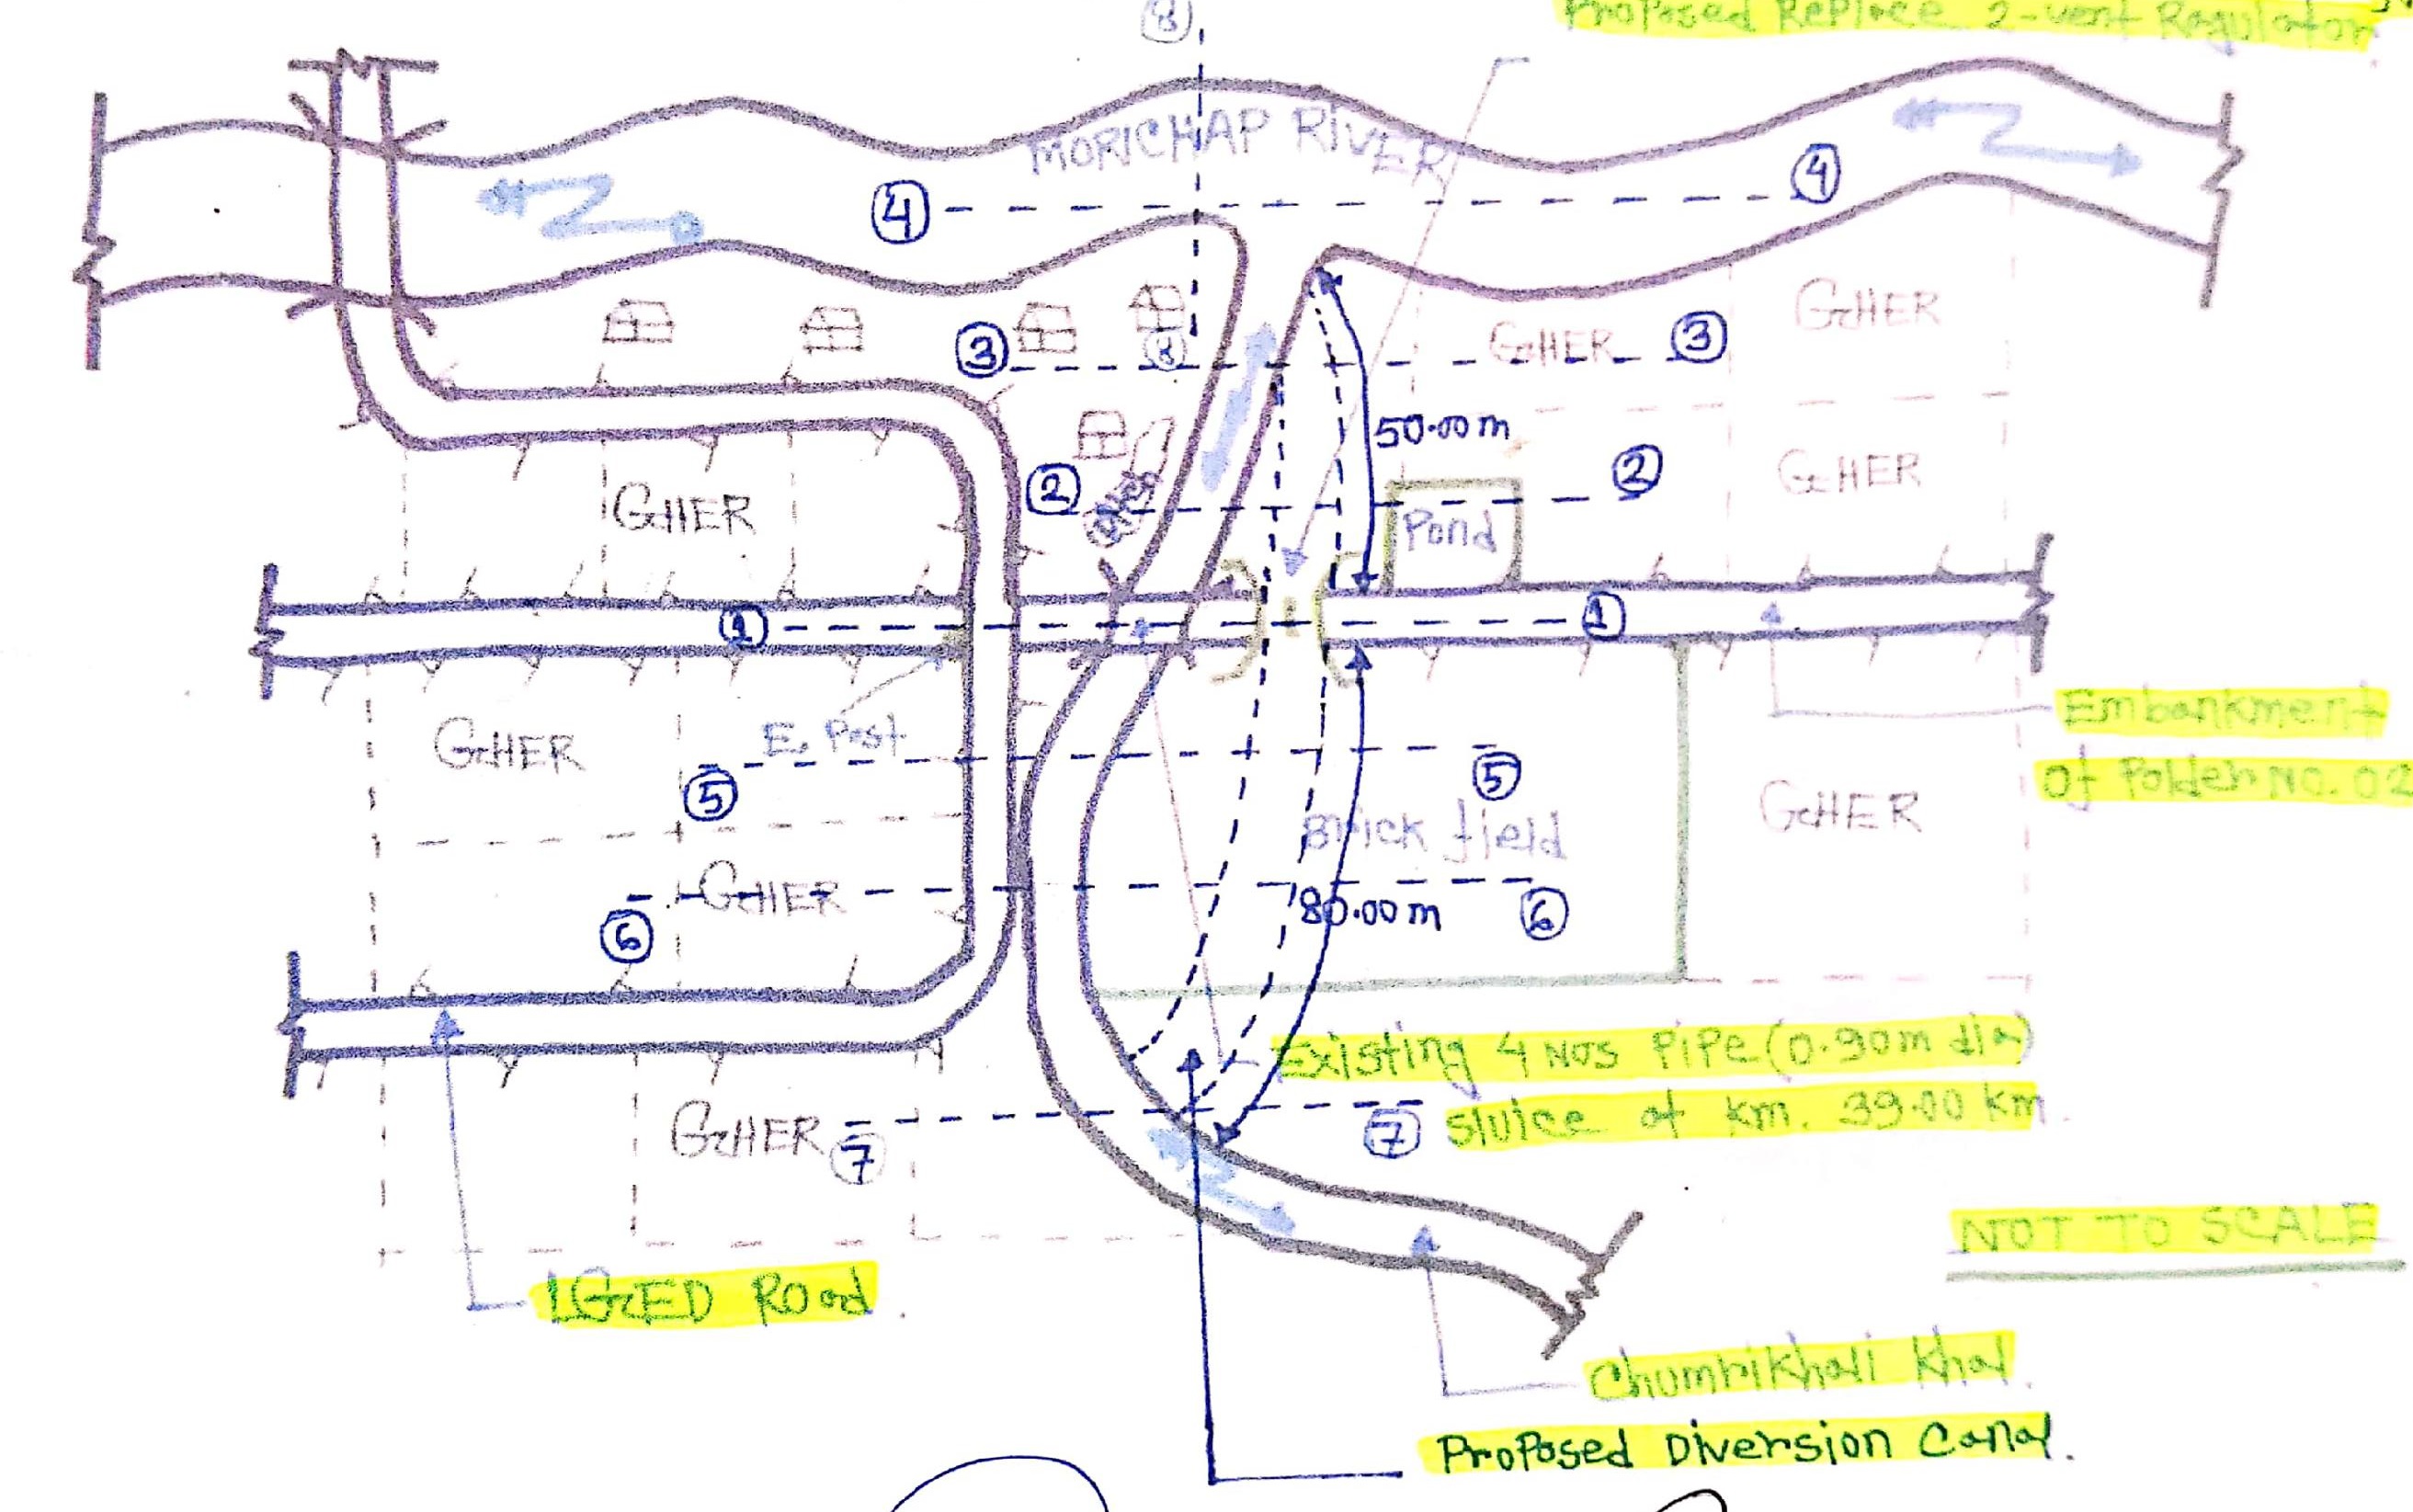 8
Proposed Replace 2-vent Regulator
MORICHAP RIVER
4
4
GHER
3
8
GHER
3
50.00 m
2
2
GHER
GHER
Pond
1
1
Embankment
of Polder No. 02
GHER
E. Post
5
5
GHER
Brick field
GHER
80.00 m
6
6
Existing 4 Nos Pipe (0.90m dia)
sluice at km. 39.00 km.
GHER
7
7
NOT TO SCALE
LGED Road.
Chumrikhali Khal.
Proposed Diversion Canal.